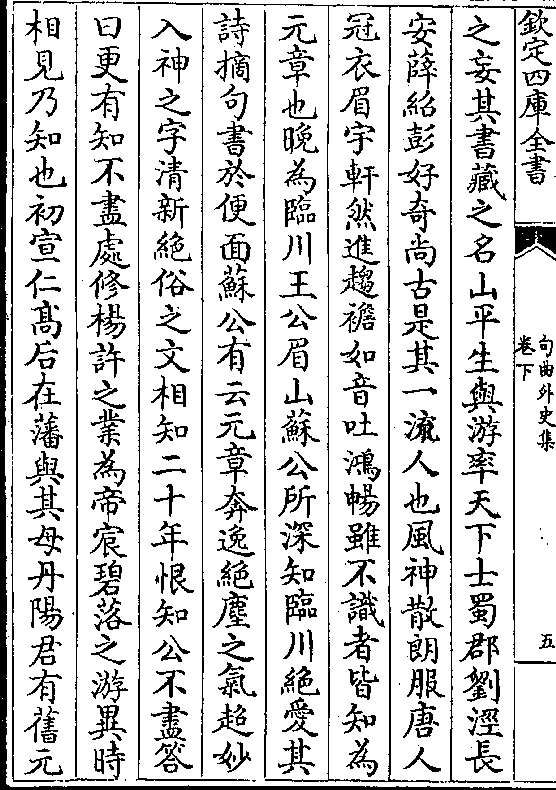 欽定四庫全書
句曲外史集
卷下
五
之妄其書藏之名山平生與游率天下士蜀郡劉涇長
安薛紹彭好奇尚古是其一流人也風神散朗服唐人
冠衣眉宇軒然進趨襜如音吐鴻暢雖不識者皆知為
元章也晚為臨川王公眉山蘇公所深知臨川絶愛其
詩摘句書於便面蘇公有云元章奔逸絶塵之氣超妙
入神之字清新絶俗之文相知二十年恨知公不盡答
曰更有知不盡處修楊許之業為帝宸碧落之游異時
相見乃知也初宣仁髙后在藩與其母丹陽君有舊元